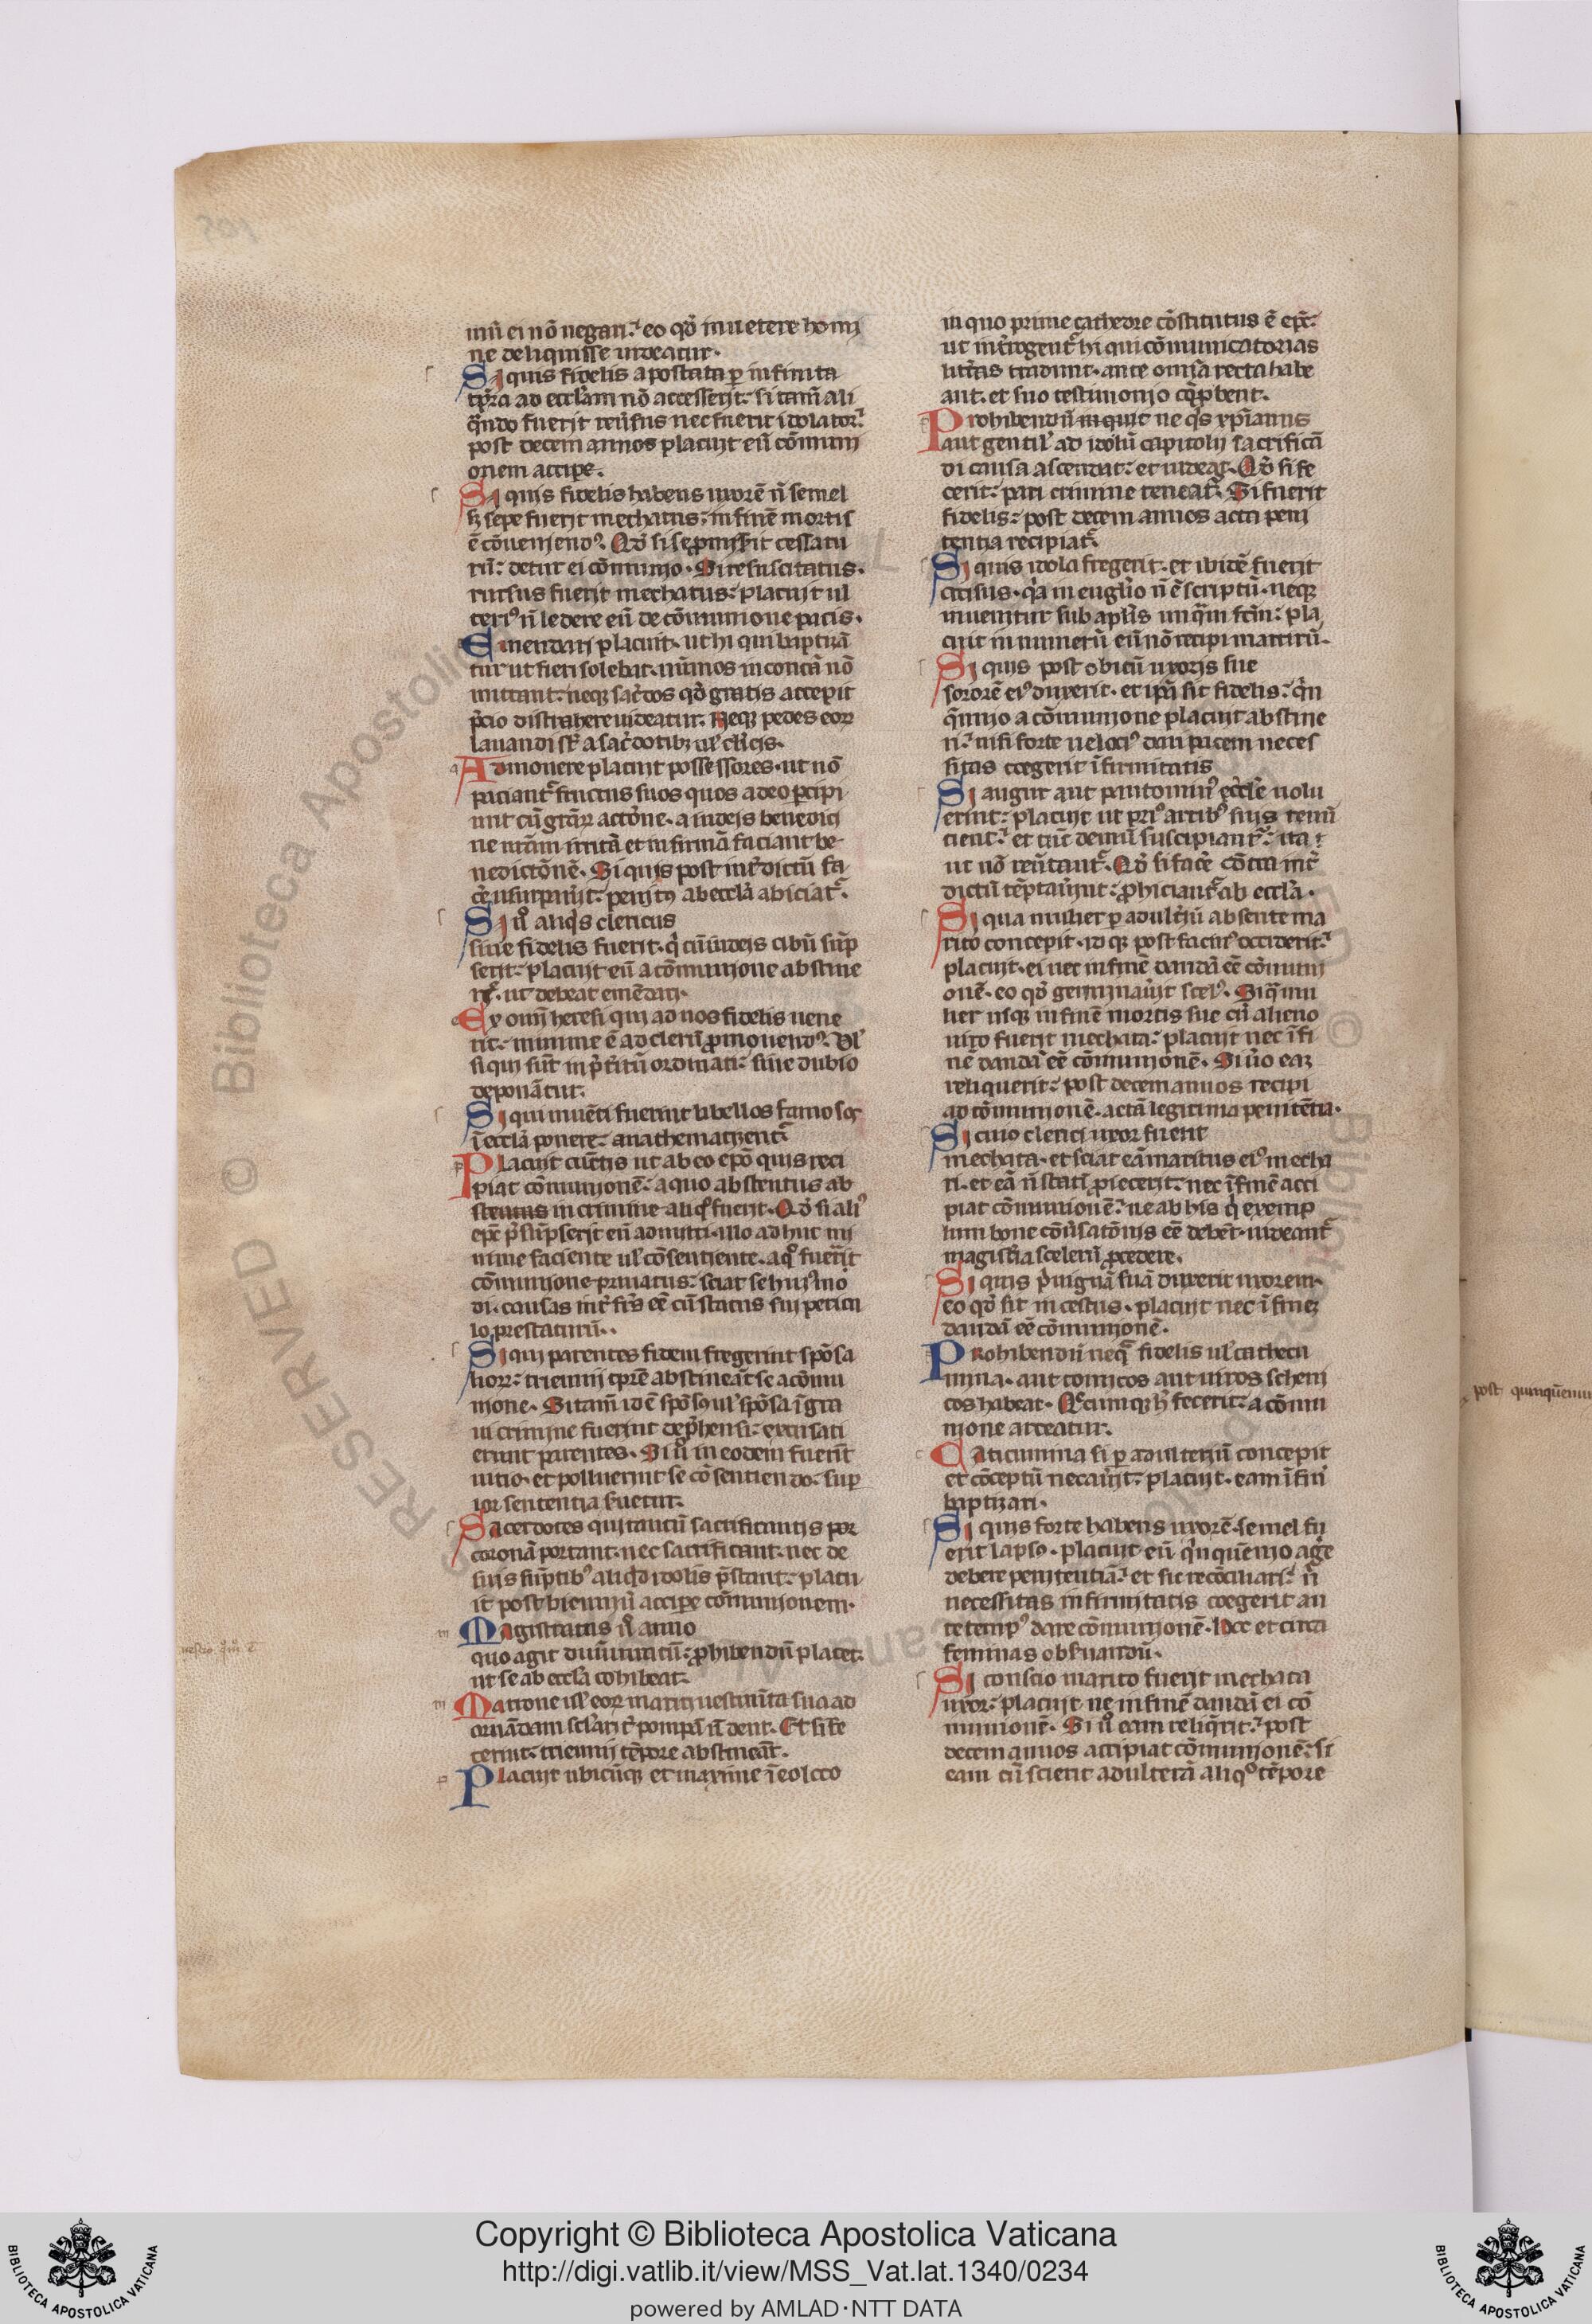 mũ ei nõ negari: eo qđ in uetere homi
ne deliquisse uideatur.
Si quis fidelis apostata ꝑ infinita
tp̃ra ad eccl̃am nõ accesserit: si tam̃ ali
q̃ndo fuerit reũsus nec fuerit idolator:
post decem annos placuit eũ cõmuni
onem accipe.
Si quis fidelis habens uxorẽ ñ semel
sʒ sepe fuerit mechatus: in finẽ mortis
ẽ cõueniendꝰ. Qđ si se ꝓmisit cessatu
rũ: detur ei cõmunio. Si resuscitatus.
rursus fuerit mechatus: placuit ul
teriꝰ ñ ledere eũ de cõmunione pacis.
Emendari placuit. ut hi qui baptizã
tur ut fieri solebat. nũmos in concã nõ
mittant: neqʒ sac̃dos qđ gratis accepit
p̃cio distrahere uideatur. Neqʒ pedes eoꝝ
lauandi sũt a sac̃dotibʒ ul̃ cl̃icis.
Admonere placuit possessores. ut nõ
paciant̃ fructus suos quos a deo ꝑcipi
unt cũ gr̃aꝝ actõne. a iudeis benedici
ne nr̃am irritã et infirmã faciant be
nedictõnẽ. Si quis post int̃dictũ fa
c̃e usurpauit: penitꝰ ab eccl̃a abiciat̃.
Si ũo aliq̃s clericus
siue fidelis fuerit. q̃ cũ iudeis cibũ sũp
serit: placuit eũ a cõmunione abstine
ri. ut debeat emẽdari.
Ex omĩ heresi qui ad nos fidelis uene
rit: minime ẽ ad clerũ ꝓmouendꝰ. Ul̃
si qui sũt in p̃t̃itũ ordinati: siue dubio
deponãtur.
Si qui inuẽti fuerint libellos famosos
ĩ eccl̃a ponere: anathematizent̃
Placuit cũctis ut ab eo ep̃o quis reci
piat cõmunionẽ: a quo abstentus ab
stentus in crimine aliq̊ fuerit. Qđ si aliꝰ
ep̃c p̃sũpserit eũ admitti. illo adhuc mi
nime faciente ul̃ cõsentiente. a q̊ fuerit
cõmunione priuatus: sciat se huiꝰmo
di. causas int̃ fr̃s eẽ cũ status sui pericu
lo prestaturũ.
Si qui parentes fidem fregerint spõsa
lioꝝ: triennij tp̃re abstineãt se a cõmu
nione. Si tam̃ idẽ spõsꝰ ul̃ spõsa ĩ gra
ui crimine fuerint dep̃hensi: excusati
erunt parentes. Si ũ in eodem fuerĩt
uitio. et polluerint se cõsentiendo: supe
ior sententia s̃uetur.
Sacerdotes qui tantũ sacrificantis por
coronã portant. nec sacrificant. nec de
suis sũptibꝰ aliqđ idolis p̃stant: placu
it post bienniũ accipe cõmunionem.
Magistratus ũo anno
quo agit duũuiratũ: ꝓhibendũ placet.
ut se ab eccl̃a cohibeat.
Matrone ul̃ eoꝝ mariti uestim̃ta sua ad
ornãdam sc̃lari t̃ pompã ñ dent. Et si fe
cerint: triennij tẽpore abstineãt.
Placuit ubicũqʒ et maxime ĩ eo loco
in quo prime cathedre cõstitutus ẽ ep̃c:
ut int̃rogent̃ hi qui cõmunicatorias
litt̃as tradunt. ante omĩa recta habe
ant. et suo testimonio cõp̃bent.
Prohibendũ inquit ne q̃s xp̃ianus
aut gentil̃ ad idolũ capitolij sacrificã
di causa ascendat: et uideat. Qđ si fe
cerit: pari crimine teneat̃. Si fuerit
fidelis: post decem annos acta peni
tentia recipiat̃.
Si quis idola fregerit. et ibidẽ fuerit
occisus. q̃a in eug̃lio ñ ẽ scriptũ. neqʒ
inuenitur sub apl̃is unq̃m fc̃m: pla
cuit in numerũ eũ nõ recipi martirũ.
Si quis post obitũ uxoris sue
sororẽ eiꝰ duxerit. et ip̃a sit fidelis: q̃n
q̃nnio a cõmunione placuit abstine
ri: nisi forte uelociꝰ dari pacem neces
sitas coegerit ĩfirmitatis
Si augur aut pantominꝰ eccl̃e uolu
erint: placuit ut priꝰ artibꝰ suis renũ
cient: et tũc demũ suscipiant̃: ita
ut nõ reũtant̃. Qđ si fac̃e cõtra int̃
dictũ tẽptauerint: ꝓhiciant̃ ab eccl̃a.
Si qua mulier ꝑ adult̃iũ absente ma
rito concepit. idqʒ post facinꝰ occiderit:
placuit. ei nec in finẽ dandã eẽ cõmuni
onẽ. eo qđ geminauit scelꝰ. Si q̃ mu
lier usqʒ in finẽ mortis sue cũ alieno
uiro fuerit mechata: placuit nec ĩ fi
nẽ dandã eẽ cõmunionẽ. Si ũo eaʒ
reliquerit: post decem annos recipi
ad cõmunionẽ. acta legitima penitẽtia.
Si cuiꝰ clerici uxor fuerit
mechata. et sciat eã maritus eiꝰ mecha
ri. et eã ñ statĩ ꝓiecerit: nec ĩ finẽ acci
piat cõmunionẽ: ne ab his q̃ exemp
lum bone cõũsatõnis eẽ debẽt. uideant̃
magist̃ia scelerũ ꝓcedere.
Si quis p̃uignã suã duxerit uxorem.
eo qđ sit incestus. placuit nec ĩ fineʒ
dandã eẽ cõmunionẽ.
Prohibendũ ne q̃ fidelis ul̃ cathecu
mina. aut comicos aut uiros sceni
cos habeat. Q̃cumqʒ h̃ fecerit: a cõmu
nione arceatur.
Caticumina si ꝑ adulteriũ concepit
et cõceptũ necauit: placuit. eam ĩ finẽ
baptizari.
Si quis forte habens uxorẽ. semel fu
erit lapsꝰ. placuit eũ q̃nquẽnio ag̃e
debere penitentiã: et sic recõciliari: ñ
necessitas infirmitatis coegerit an
te tempꝰ dare cõmunionẽ. Hoc et circa
feminas obs̃uandũ.
Si conscio marito fuerit mechata
uxor: placuit ne in finẽ dandã ei cõ
munionẽ. Si ũo eam reliq̃rit: post
decem annos accipiat cõmunionẽ: si
eam cũ scierit adulterã aliq̊ tẽpore
post quinquẽnniũ
RESERVED © Biblioteca Apostolica
Copyright © Biblioteca Apostolica Vaticana
http://digi.vatlib.it/view/MSS_Vat.lat.1340/0234
powered by AMLAD·NTT DATA
BIBLIOTECA APOSTOLICA VATICANA
BIBLIOTECA APOSTOLICA VATICANA